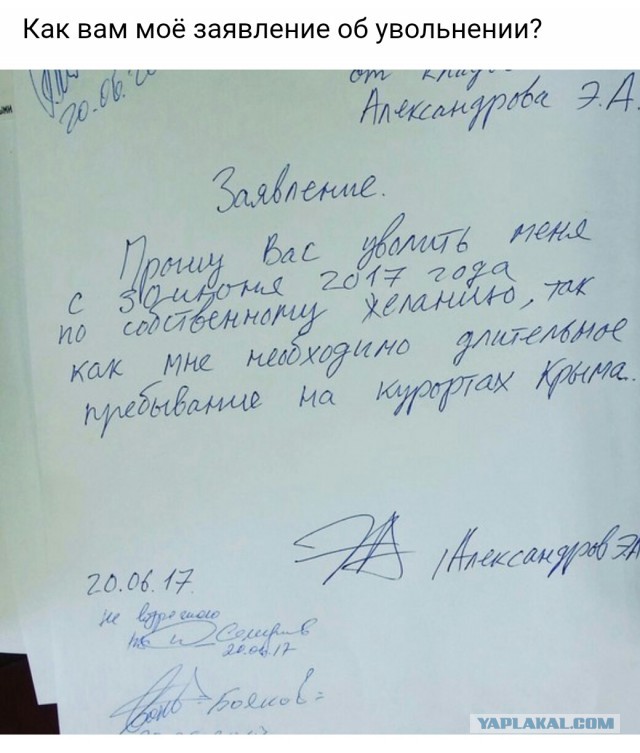 Как вам моё заявление об увольнении?
20.06.
от
Александрова Э.А.
Заявление.
Прошу Вас уволить меня
с 30 июня 2017 года
по собственному желанию, так
как мне необходимо длительное
пребывание на курортах Крыма.
/Александров ЭА
20.06.17.
не возражаю
20.06.17
YAPLAKAL.COM